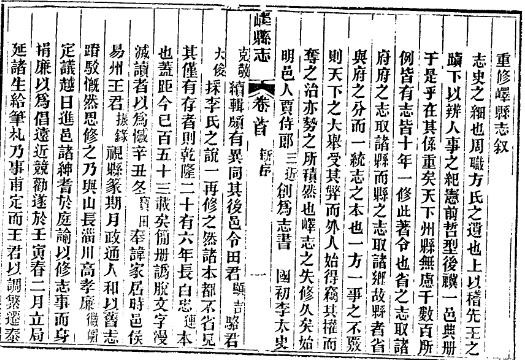 重修嶧縣志叙
志史之細也周職方氏之遺也上以稽先王之
蹟下以辨人事之紀憲前哲型後禩一邑典册
于是乎在其係重矣天下州縣無慮千數百所
例皆有志皆十年一修此著令也省之志取諸
府府之志取諸縣而縣之志取諸鄉故縣者省
與府之分而一統志之本也一方一事之不覈
則天下之大舉受其弊而外人始得竊其權而
奪之治亦勢之所積然也嶧志之失修久矣始
明邑人賈侍郎三近創為志書 國初李太史
嶧縣志 卷首 序
克敬續輯頗有異同其後邑令田君顯吉駱君
大俊採李氏之說一再修之然諸本都不省見
其僅有存者則乾隆二十有六年長白忠璉本
也蓋距今已百五十三載矣簡册譌脫文字漫
滅讀者以為憾辛丑冬寶田奉諱家居時邑侯
易州王君振錄視縣篆期月政通人和以舊志
踳駁慨然思修之乃與山長淄川高孝廉
定議越日進邑諸紳耆於庭諭以修志事而身
捐廉以為倡遠近競勸遂於壬寅春二月立局
延諸生給筆札乃事甫定而王君以調繁遷泰